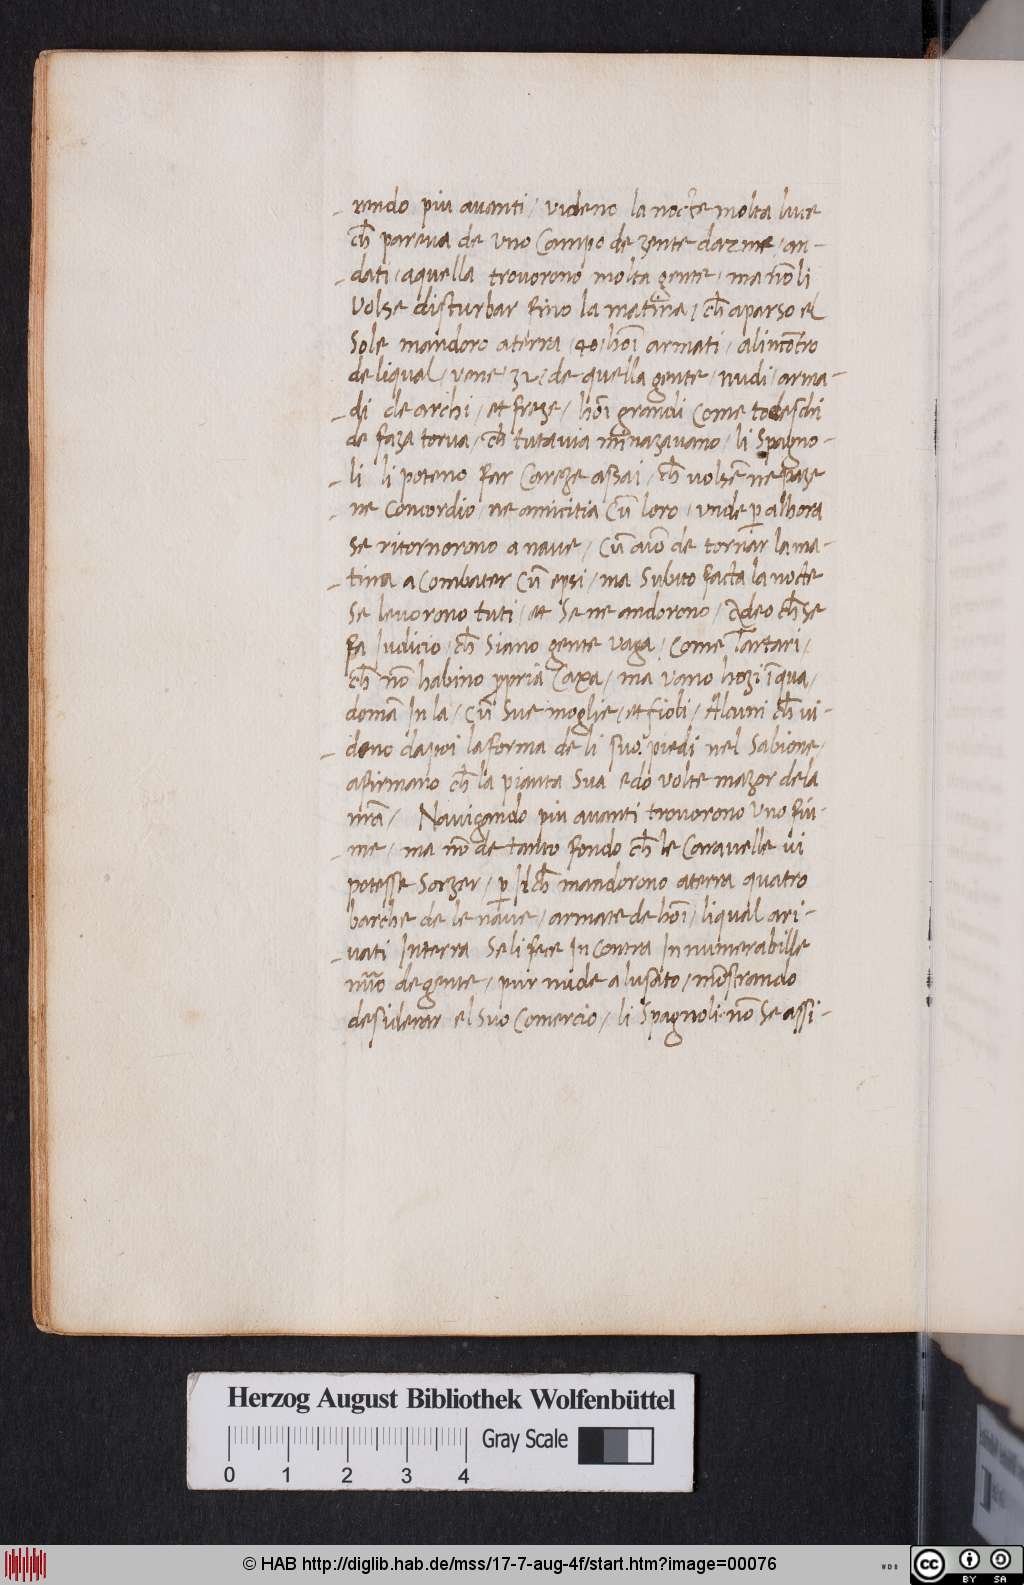 -rendo piu avanti / videno la nocte molta luce
ch̄ pareva de uno Campo de zente darme / an-
-dati / aquella trovorono molta gente / ma nōli
volse disturbar fino la matina / ch̄ aparso el
Sole mandoro aterra / 40 / hoī armati / alincōtro
de liqual / vene / 32 / de quella gente / nudi / arma-
-di de archi / et freze / hoī grandi Come todeschi
de faza torva / ch̄ tutavia minazavano / li Spagno-
-li li poteno far Careze assai / ch̄ volsē ne paze
-ne Concordio / ne amicitia Cū loro / unde p̄ alhora
Se ritornorono a nave / Cū aīo de tornar la ma-
-tina a Combater Cū epsi / ma Subito facta la nocte
Se levorono tuti / et Se ne andorono / Adeo ch̄ Se
fa Iudicio / ch̄ Siano gente vaga / Come Tartari /
ch̄ nō habino ppria Caxa / ma vano hozi ī qua /
domā In la / Cū Sue moglie / et fioli / Alcuni ch̄ vi-
-deno dapoi la forma de li suo piedi nel Sabione /
afirmano ch̄ la pianta Sua e do volte mazor de la
nrā / Navigando piu avanti trovorono Uno fiu-
-me / ma nō de tanto fondo ch̄ le Caravelle vi
potesse Sorzer / p̄ Il ch̄ mandorono aterra quatro
barche de le nave / armate de hoī / liqual ari-
-vati Interra Se li fece In Contra Innumerabille
nūo de gente / pur nude a lusato / mōstrando
desiderar el Suo Comercio / li Spagnoli nō Se assi-
Herzog August Bibliothek Wolfenbüttel
Gray Scale
0 1 2 3 4
© HAB http://diglib.hab.de/mss/17-7-aug-4f/start.htm?image=00076
cc BY SA